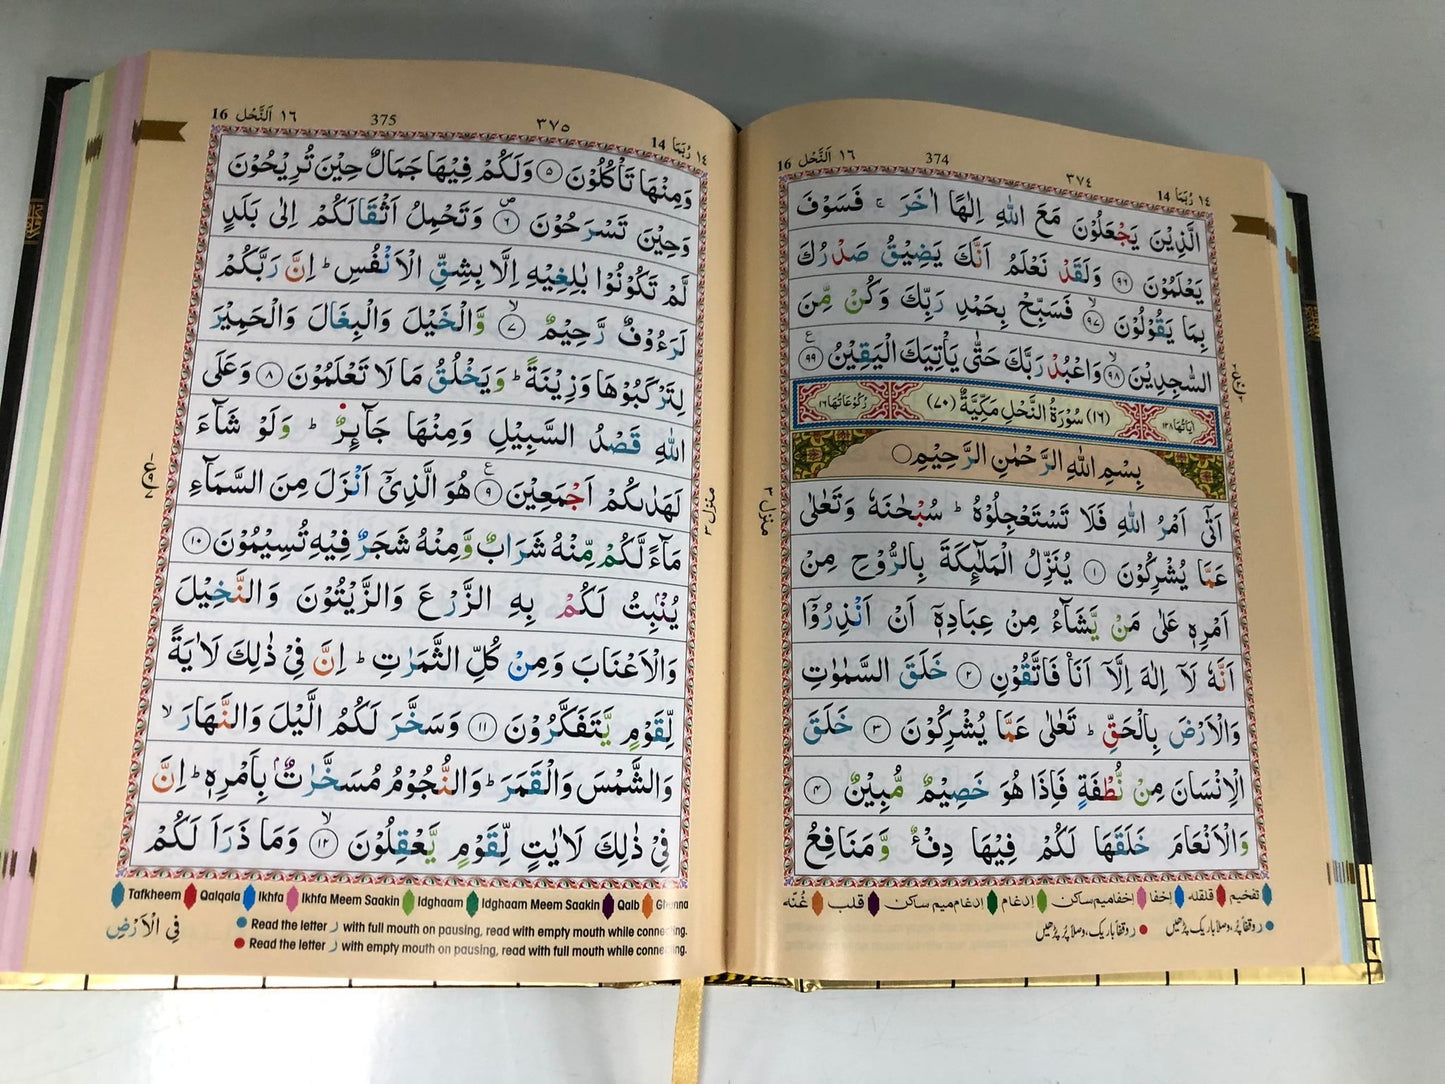 ١٤ رُبَمَا 14
٣٧٤
374
١٦ اَلنَّحْل 16
الَّذِيْنَ يَجْعَلُوْنَ مَعَ اللّٰهِ اِلٰهًا اٰخَرَ ۚ فَسَوْفَ
يَعْلَمُوْنَ ۝٩٦ وَلَقَدْ نَعْلَمُ اَنَّكَ يَضِيْقُ صَدْرُكَ
بِمَا يَقُوْلُوْنَ ۝٩٧ۙ فَسَبِّحْ بِحَمْدِ رَبِّكَ وَكُنْ مِّنَ
السّٰجِدِيْنَ ۝٩٨ۙ وَاعْبُدْ رَبَّكَ حَتّٰى يَاْتِيَكَ الْيَقِيْنُ ۝٩٩
اٰيَاتُهَا ١٢٨ (١٦) سُوْرَةُ النَّحْلِ مَكِّيَّةٌ (٧٠) رُكُوْعَاتُهَا ١٦
بِسْمِ اللّٰهِ الرَّحْمٰنِ الرَّحِيْمِ
اَتٰۤى اَمْرُ اللّٰهِ فَلَا تَسْتَعْجِلُوْهُ ؕ سُبْحٰنَهٗ وَتَعٰلٰى
عَمَّا يُشْرِكُوْنَ ۝١ يُنَزِّلُ الْمَلٰٓئِكَةَ بِالرُّوْحِ مِنْ
اَمْرِهٖ عَلٰى مَنْ يَّشَآءُ مِنْ عِبَادِهٖۤ اَنْ اَنْذِرُوْۤا
اَنَّهٗ لَاۤ اِلٰهَ اِلَّاۤ اَنَا۠ فَاتَّقُوْنِ ۝٢ خَلَقَ السَّمٰوٰتِ
وَالْاَرْضَ بِالْحَقِّ ؕ تَعٰلٰى عَمَّا يُشْرِكُوْنَ ۝٣ خَلَقَ
الْاِنْسَانَ مِنْ نُّطْفَةٍ فَاِذَا هُوَ خَصِيْمٌ مُّبِيْنٌ ۝٤
وَالْاَنْعَامَ خَلَقَهَا لَكُمْ فِيْهَا دِفْءٌ وَّمَنَافِعُ
تفخیم قلقله اِخفا اِخفامیم ساکن اِدغام اِدغام میم ساکن قلب غُنّه
ر وقفاً پُر، وصلاً باریک پڑھیں ر وقفاً باریک، وصلاً پُر پڑھیں
منزل ٣
١٤ رُبَمَا 14
٣٧٥
375
١٦ اَلنَّحْل 16
وَمِنْهَا تَاْكُلُوْنَ ۝٥ وَلَكُمْ فِيْهَا جَمَالٌ حِيْنَ تُرِيْحُوْنَ
وَحِيْنَ تَسْرَحُوْنَ ۝٦ وَتَحْمِلُ اَثْقَالَكُمْ اِلٰى بَلَدٍ
لَّمْ تَكُوْنُوْا بٰلِغِيْهِ اِلَّا بِشِقِّ الْاَنْفُسِ ؕ اِنَّ رَبَّكُمْ
لَرَءُوْفٌ رَّحِيْمٌ ۝٧ۙ وَّالْخَيْلَ وَالْبِغَالَ وَالْحَمِيْرَ
لِتَرْكَبُوْهَا وَزِيْنَةً ؕ وَيَخْلُقُ مَا لَا تَعْلَمُوْنَ ۝٨ وَعَلَى
اللّٰهِ قَصْدُ السَّبِيْلِ وَمِنْهَا جَآئِرٌ ؕ وَلَوْ شَآءَ
لَهَدٰىكُمْ اَجْمَعِيْنَ ۝٩ هُوَ الَّذِيْۤ اَنْزَلَ مِنَ السَّمَآءِ
مَآءً لَّكُمْ مِّنْهُ شَرَابٌ وَّمِنْهُ شَجَرٌ فِيْهِ تُسِيْمُوْنَ ۝١٠
يُنْۢبِتُ لَكُمْ بِهِ الزَّرْعَ وَالزَّيْتُوْنَ وَالنَّخِيْلَ
وَالْاَعْنَابَ وَمِنْ كُلِّ الثَّمَرٰتِ ؕ اِنَّ فِيْ ذٰلِكَ لَاٰيَةً
لِّقَوْمٍ يَّتَفَكَّرُوْنَ ۝١١ وَسَخَّرَ لَكُمُ الَّيْلَ وَالنَّهَارَ ۙ
وَالشَّمْسَ وَالْقَمَرَ ؕ وَالنُّجُوْمُ مُسَخَّرٰتٌۢ بِاَمْرِهٖ ؕ اِنَّ
فِيْ ذٰلِكَ لَاٰيٰتٍ لِّقَوْمٍ يَّعْقِلُوْنَ ۝١٢ۙ وَمَا ذَرَاَ لَكُمْ
Tafkheem Qalqala Ikhfa Ikhfa Meem Saakin Idghaam Idghaam Meem Saakin Qalb Ghunna
Read the letter ر with full mouth on pausing, read with empty mouth while connecting.
Read the letter ر with empty mouth on pausing, read with full mouth while connecting.
فِي الْاَرْضِ
منزل ٣